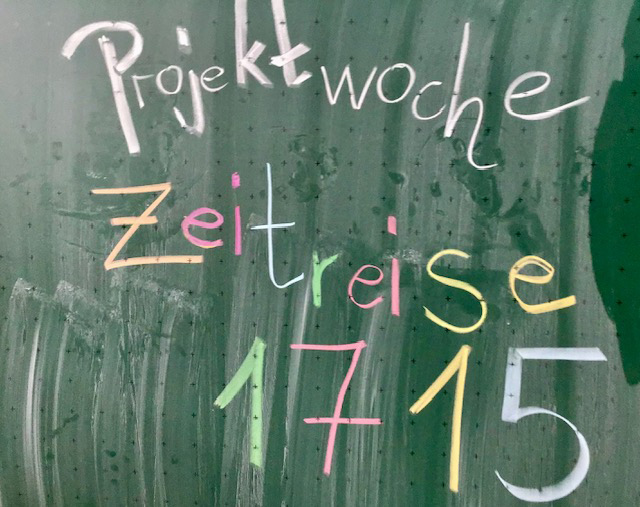 Projektwoche
Zeitreise
1715